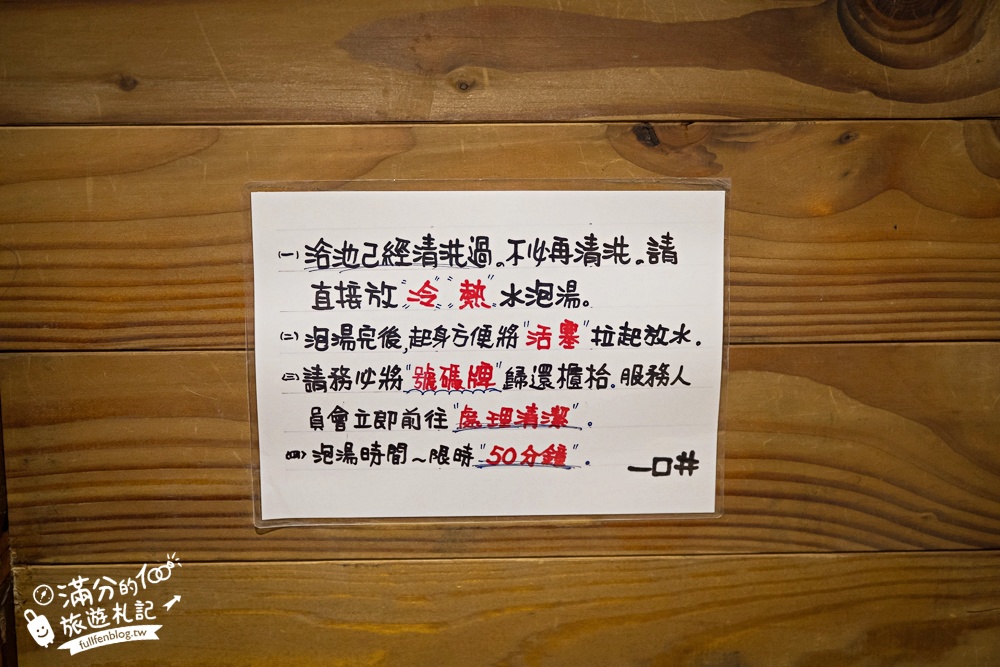 (一) 浴池已經清洗過。不必再清洗。請
直接放"冷""熱"水泡湯。
(二) 泡湯完後,起身方便將"活塞"拉起放水.
(三) 請務必將"號碼牌"歸還櫃枱.服務人
員會立即前往"處理清潔"。
(四) 泡湯時間~限時"50分鐘".
一口井
滿分的100
旅遊札記
fullfenblog.tw